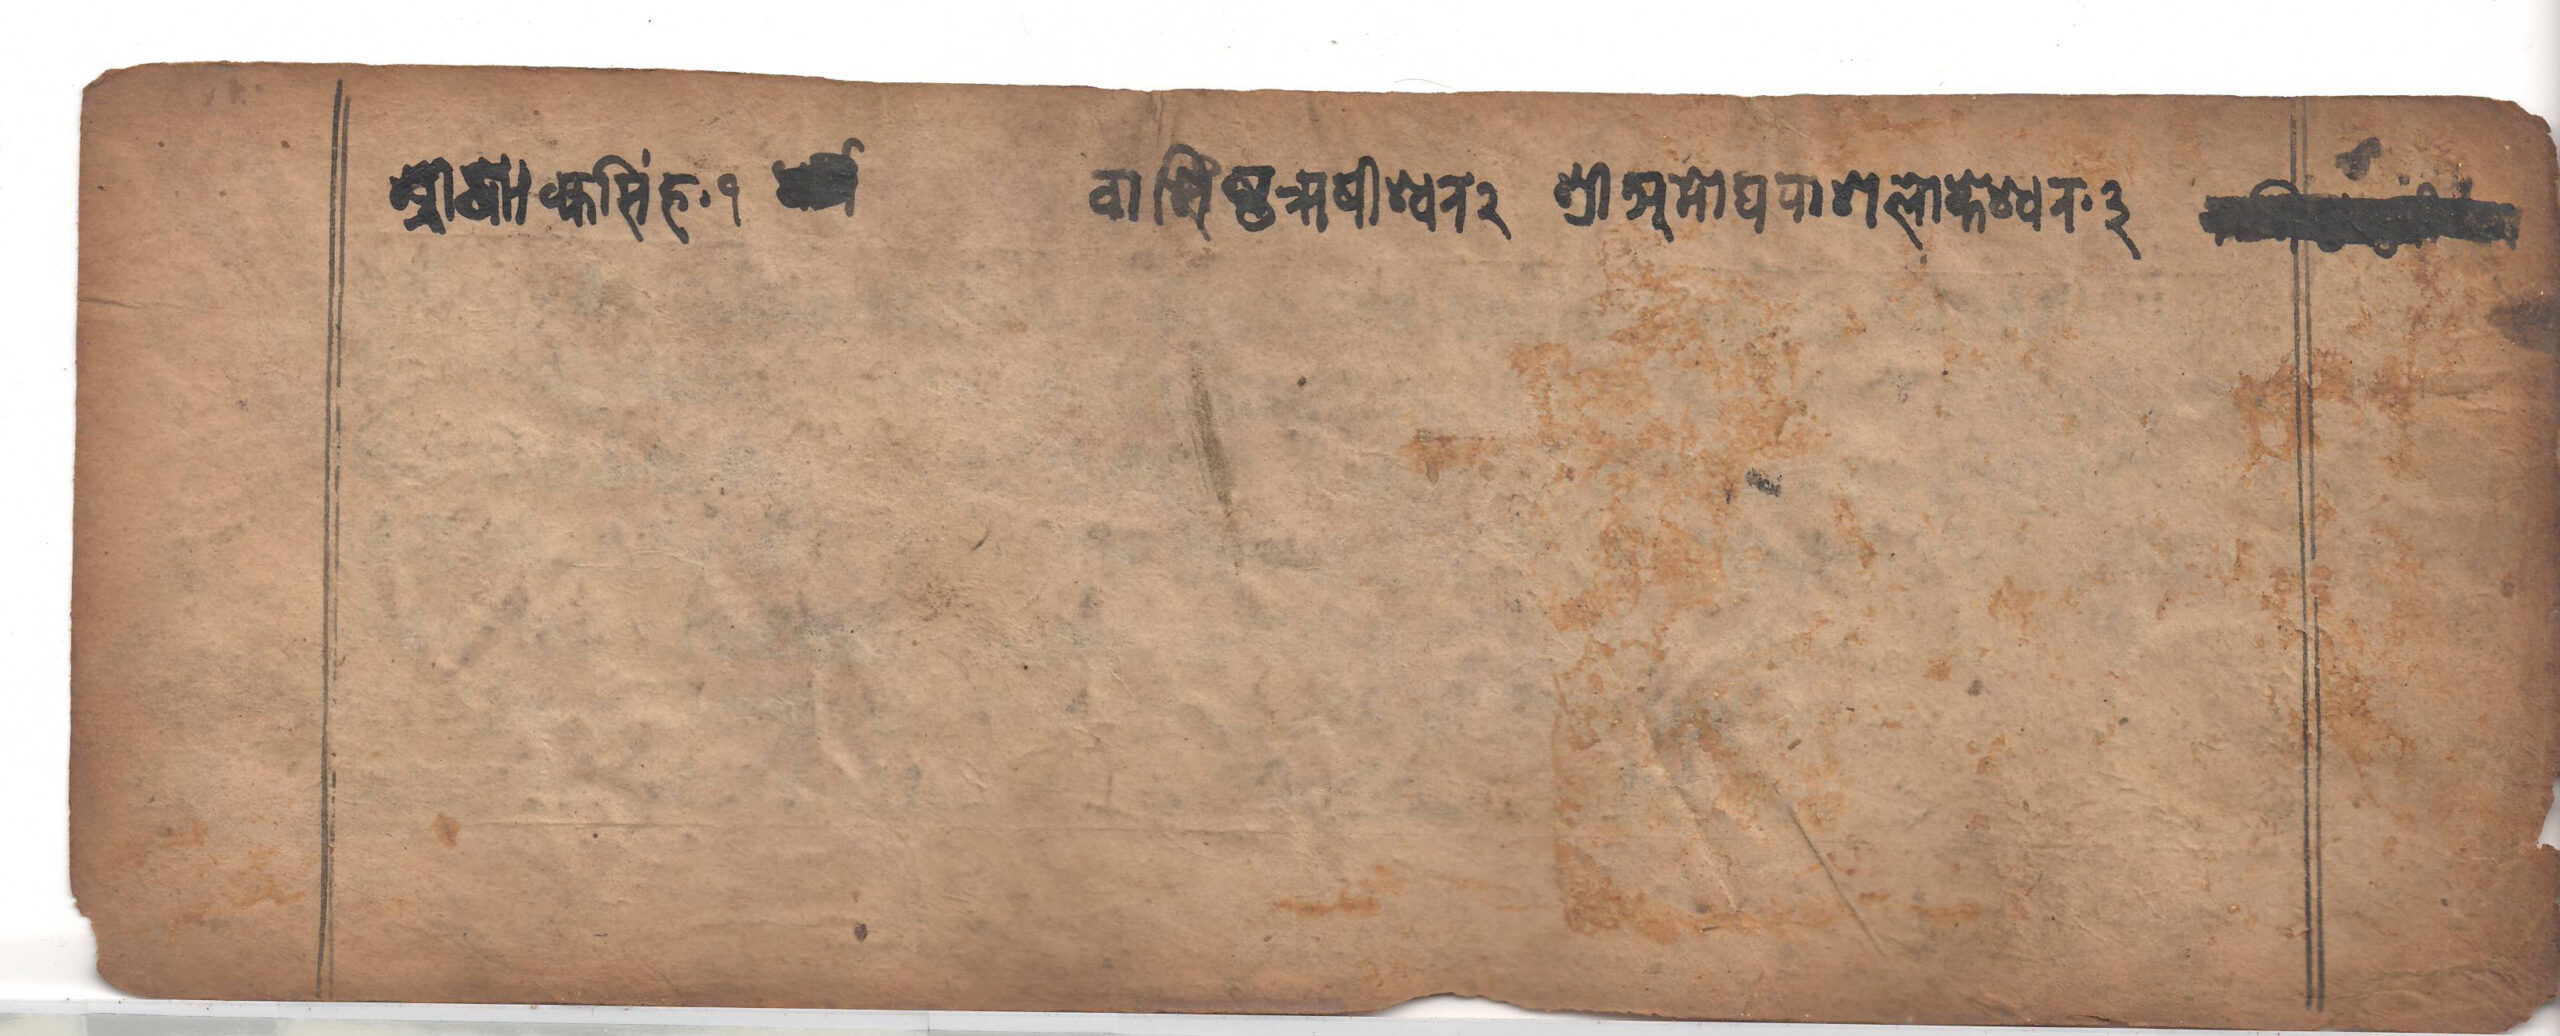 श्रीशाक्यसिंह. १ वाशिष्ठऋषीश्वर २ श्रीअमोघपाशलोकेश्वर. ३